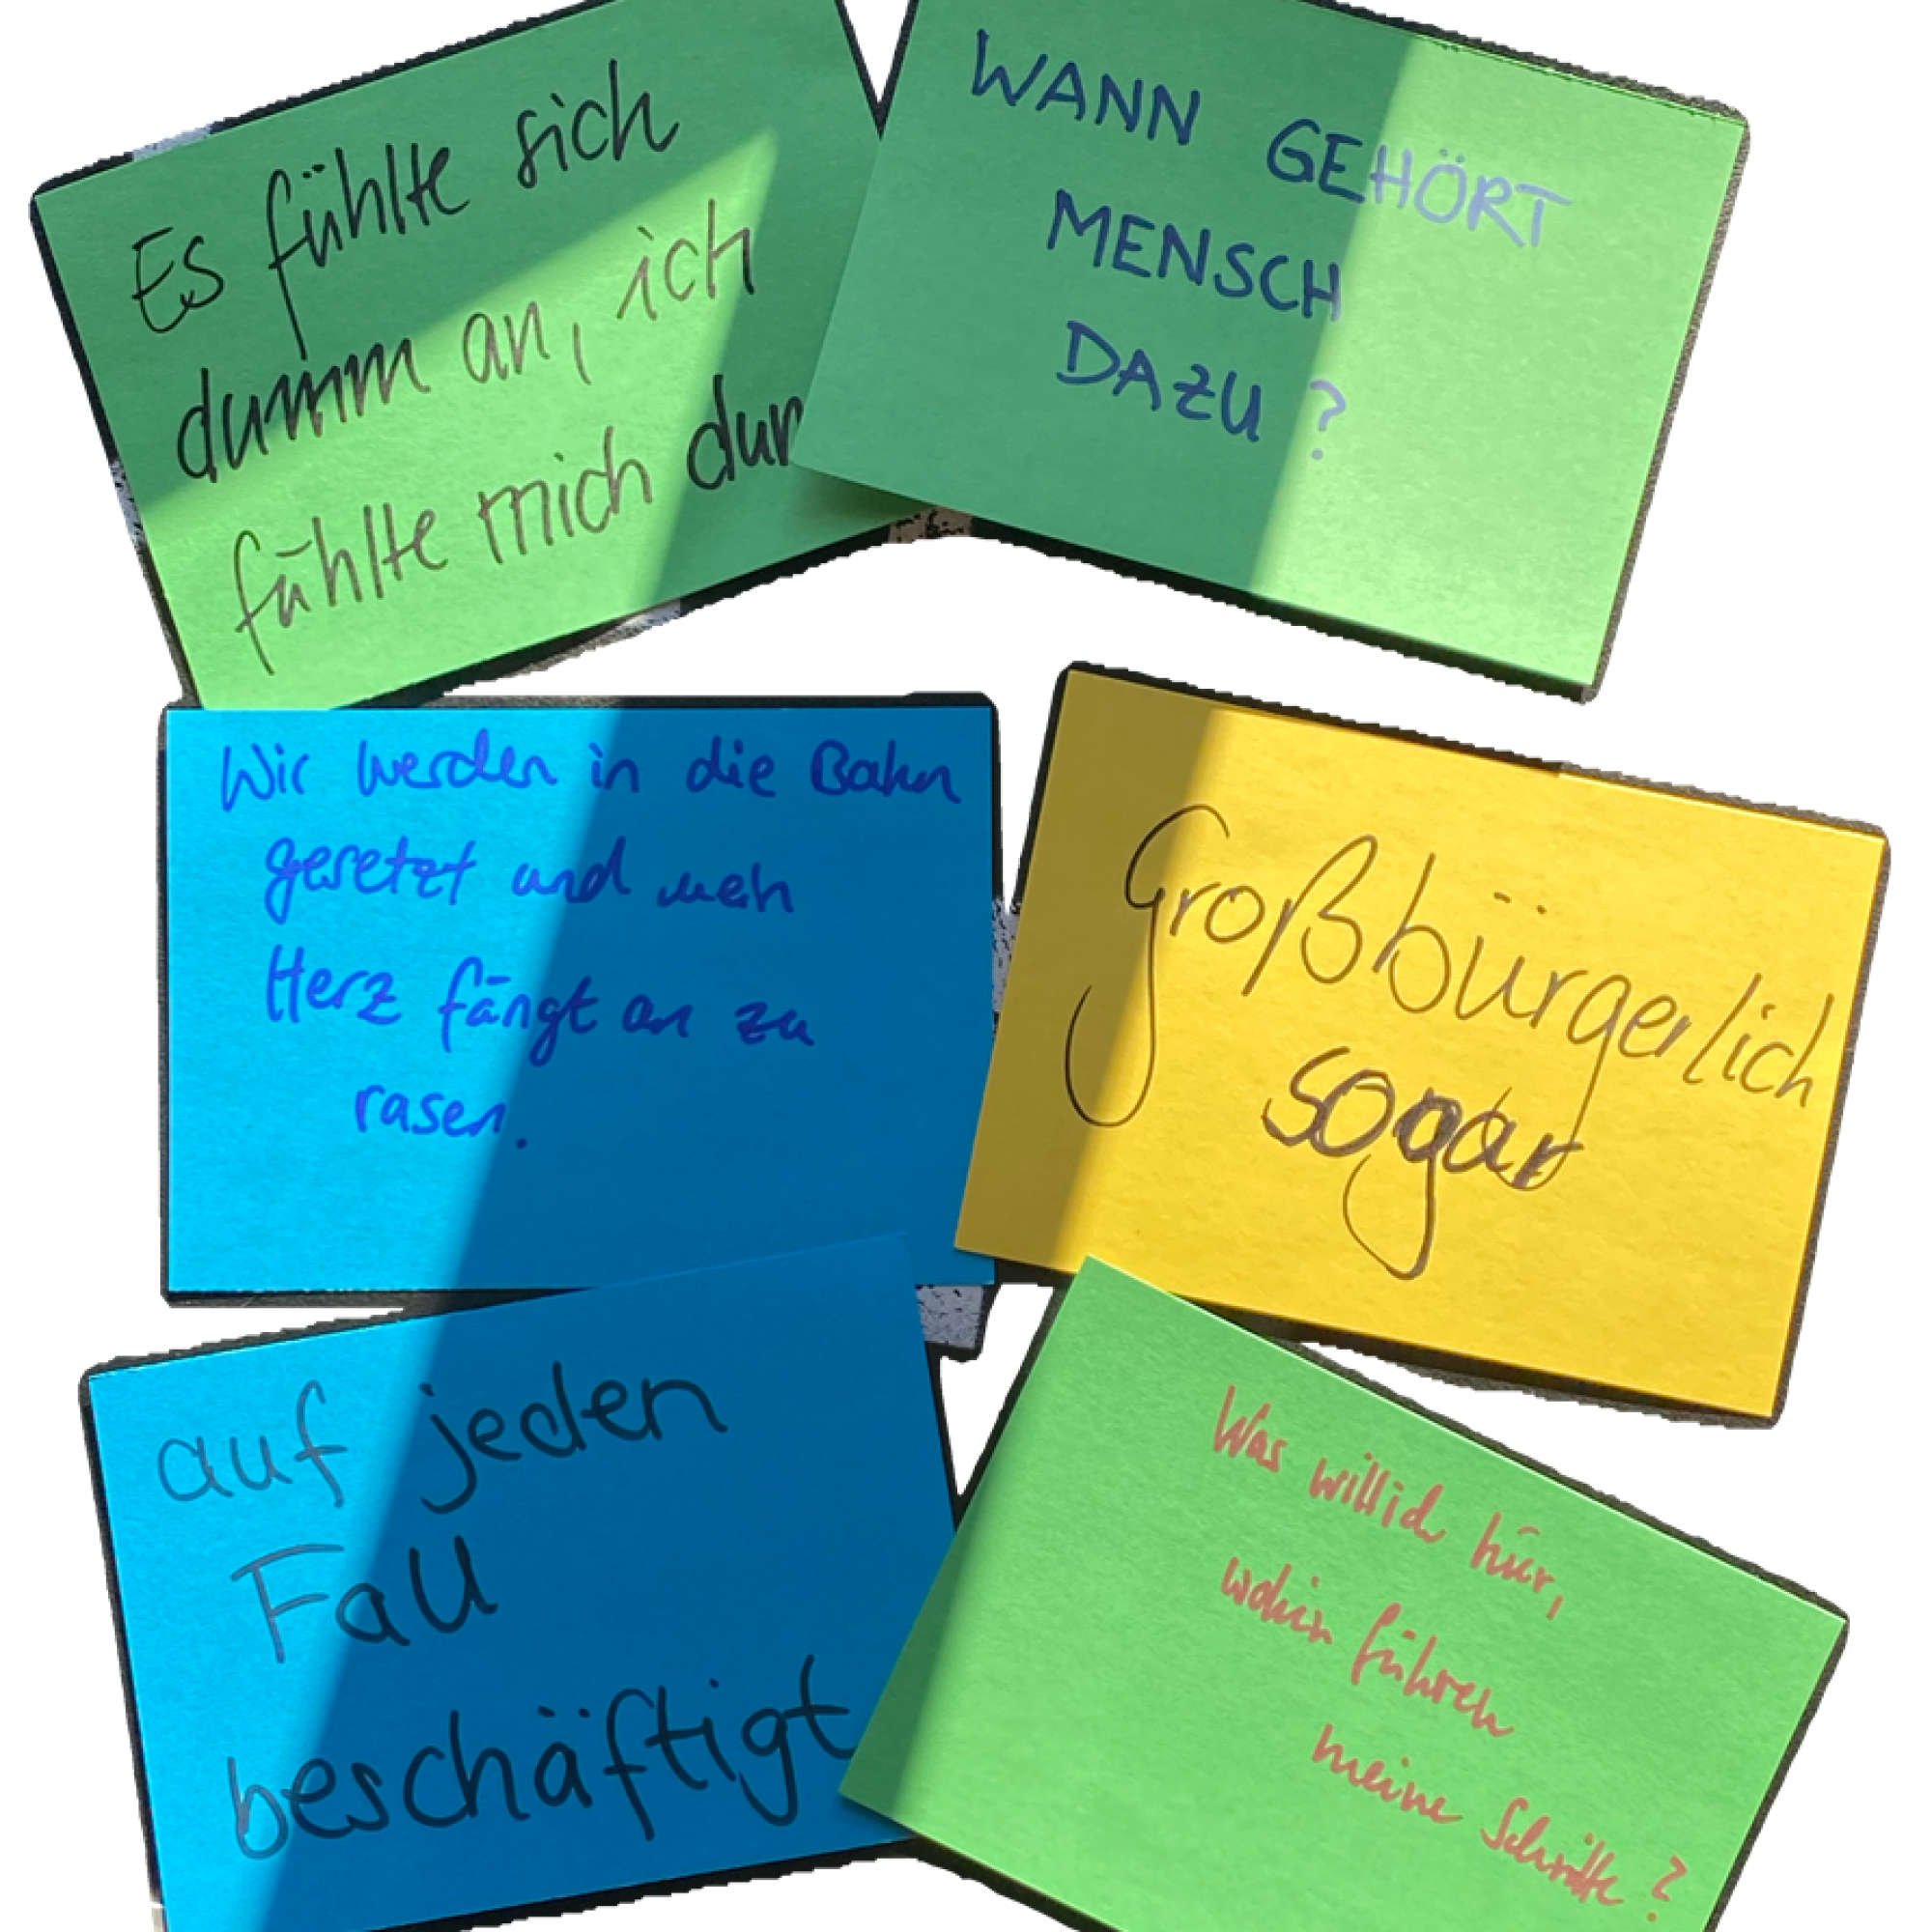 Es fühlte sich
dumm an, ich
fühlte mich
WANN GEHÖRT
MENSCH
DAZU?
Wir werden in die Bahn
gesetzt und mein
Herz fängt an zu
rasen.
Großbürgerlich
sogar
auf jeden
Fall
beschäftigt
Was will ich hier,
wohin führen
meine Schritte?